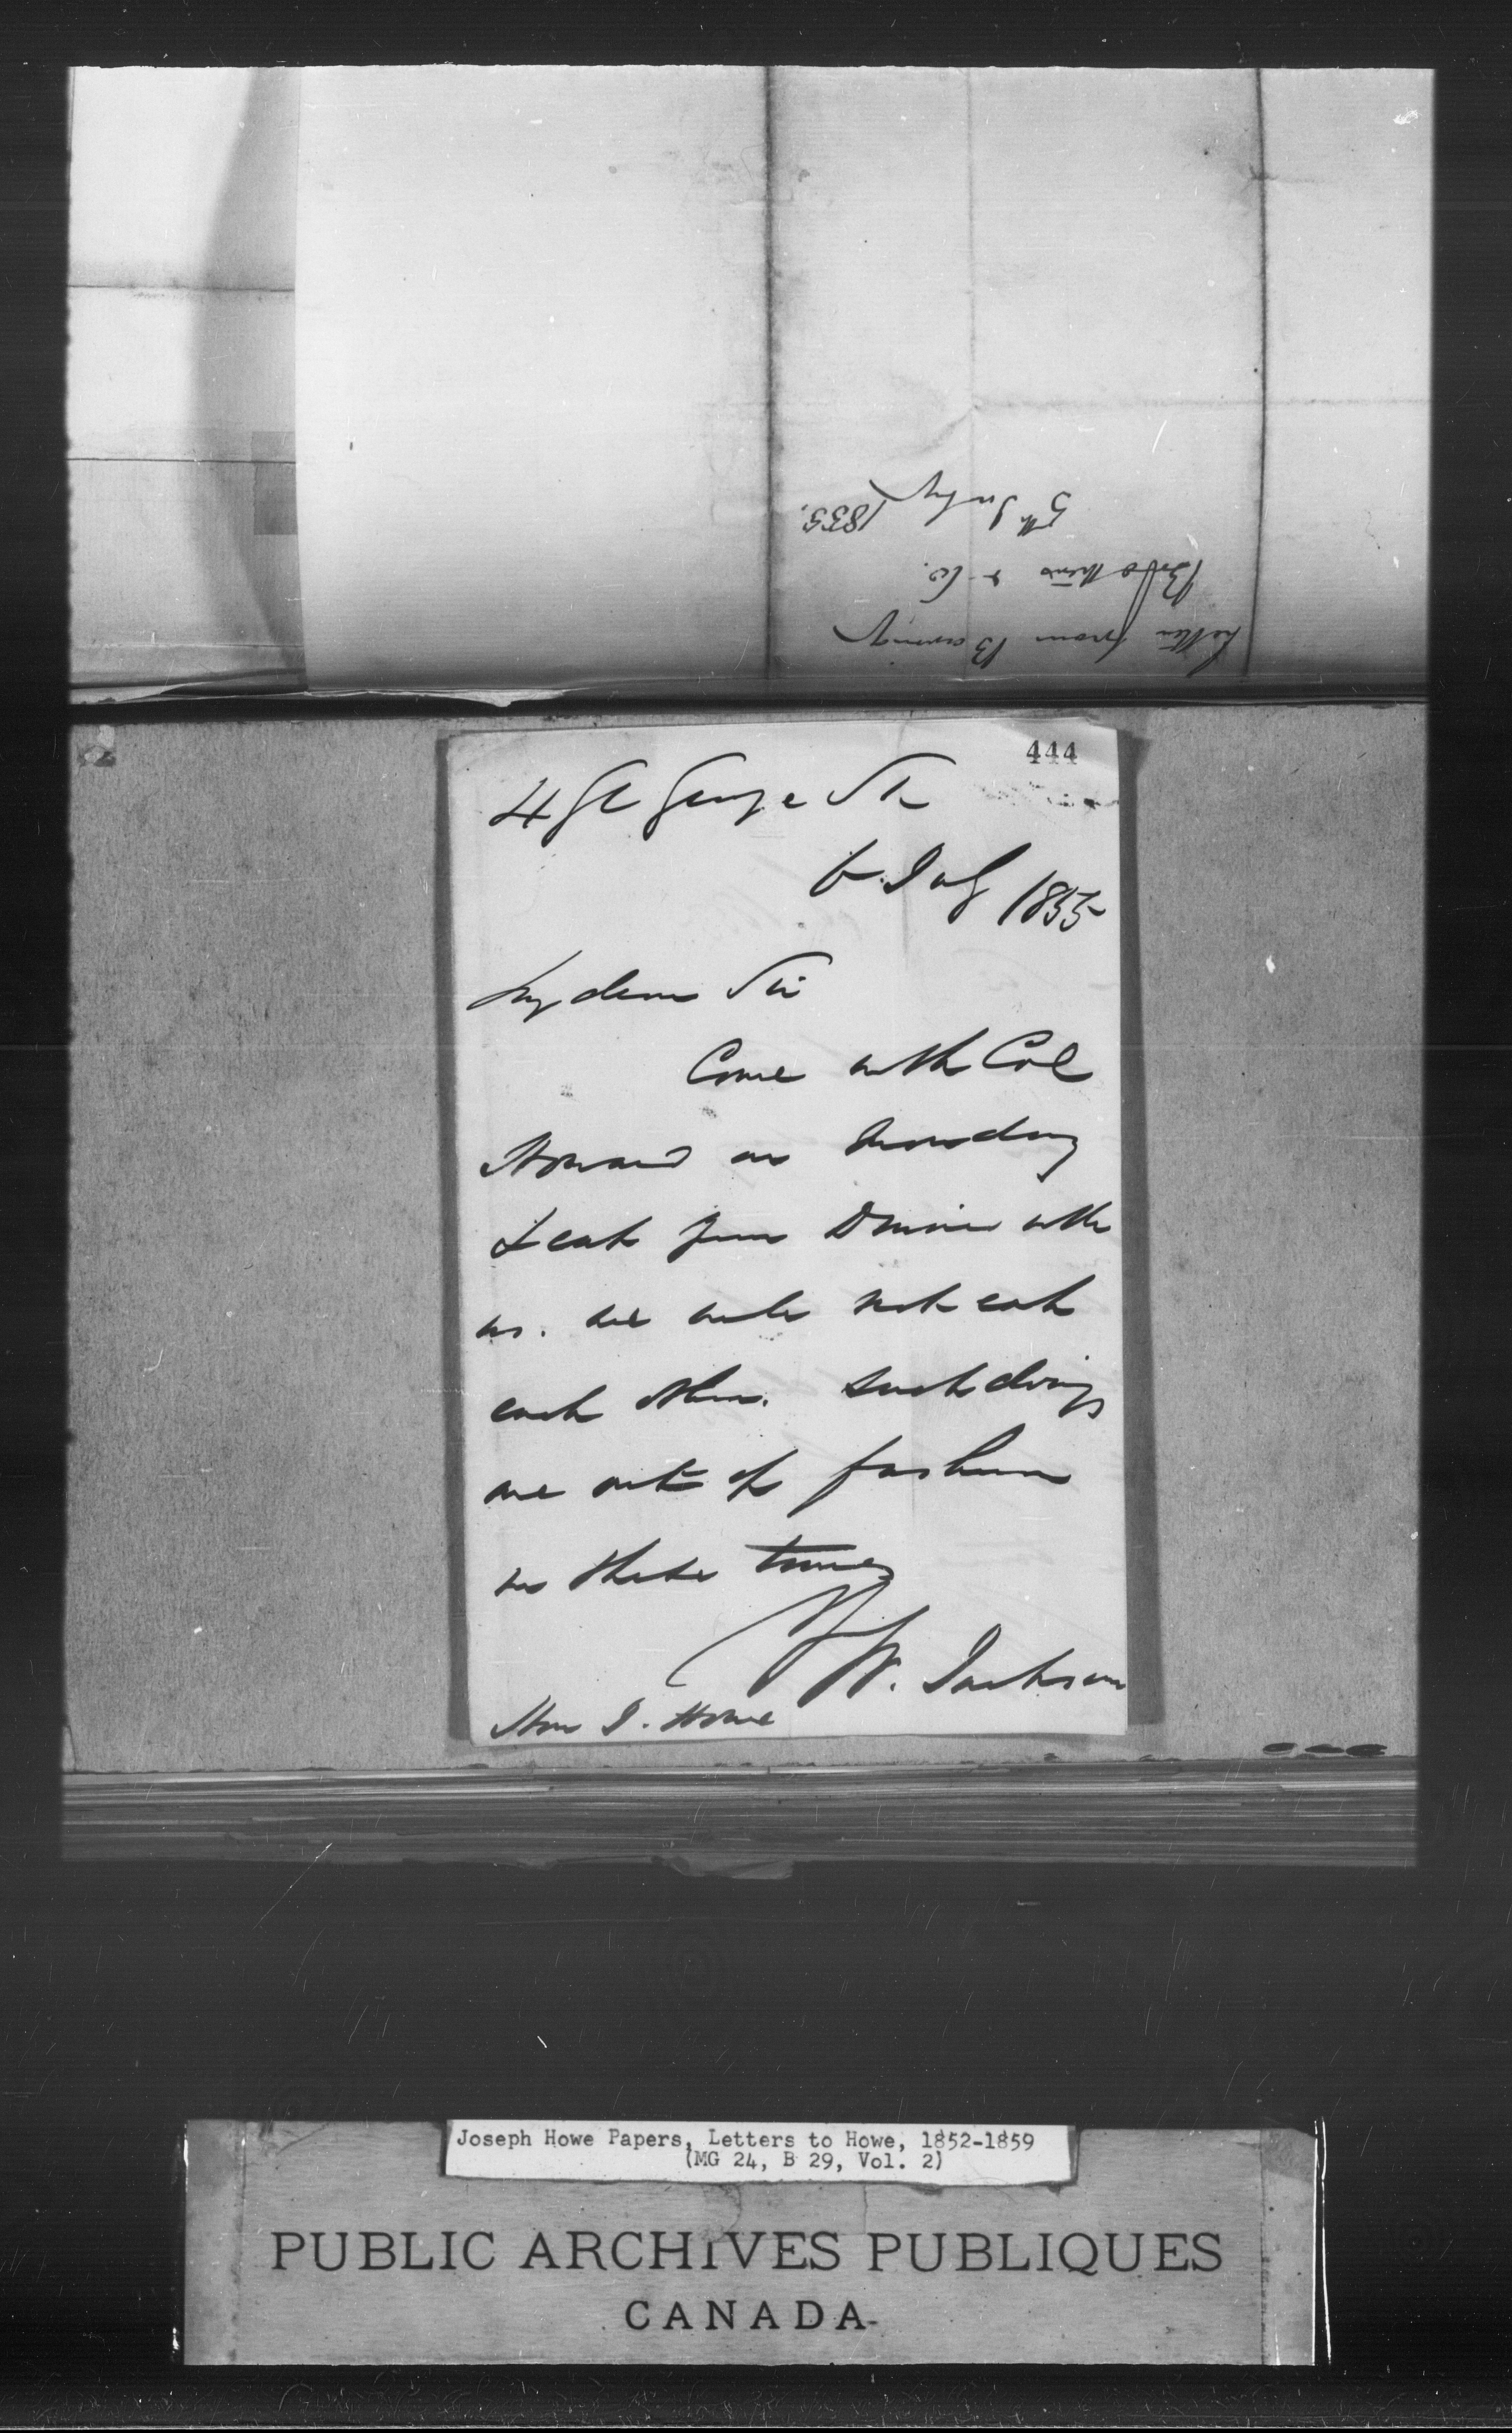 Letter from Baring
Brothers & Co.
5th July 1855.
444
4 Gt George St
6 July 1855
My dear Sir
Come with Col
Howard on Monday
& eat your Dinner with
us. We will not eat
each other. Such doings
are out of fashion
in these times
W. Jackson
Hon J. Howe
Joseph Howe Papers, Letters to Howe, 1852-1859
(MG 24, B 29, Vol. 2)
PUBLIC ARCHIVES PUBLIQUES
CANADA